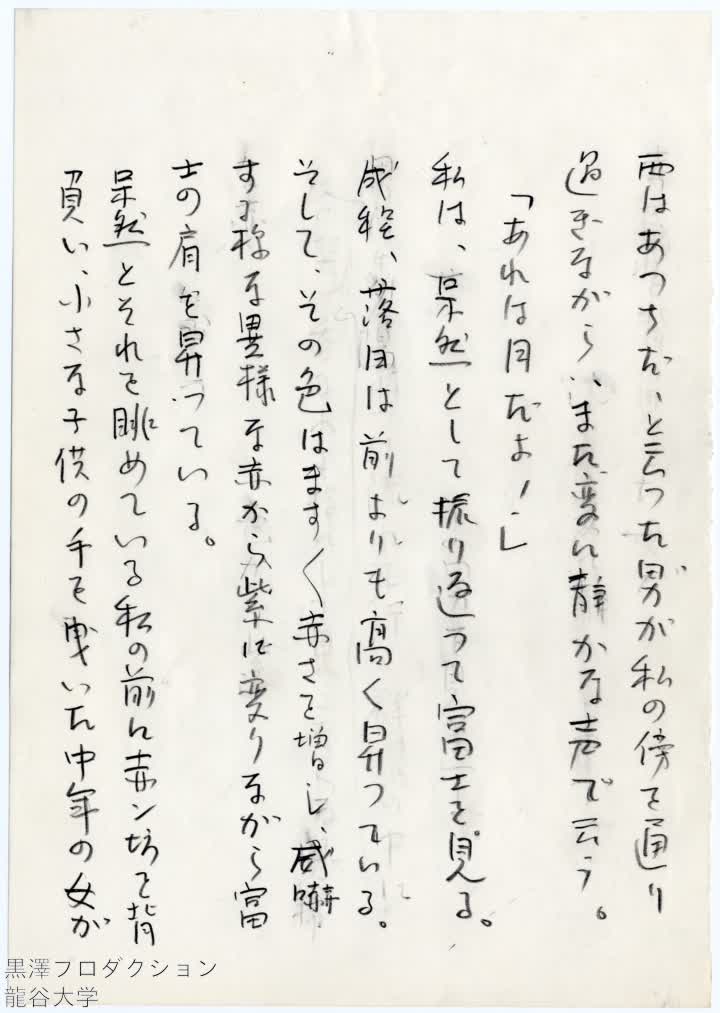 西はあつちだ、と云つた男が私の傍を通り
過ぎながら、また変に静かな声で云う。
「あれは月だよ！」
私は、呆然として振り返つて富士を見る。
成程、落日は前よりも高く昇つている。
そして、その色はます〱赤さを増し、威嚇
する様な異様な赤から紫に変りながら富
士の肩を昇つている。
呆然とそれを眺めている私の前に赤ン坊を背
負い、小さな子供の手を曳いた中年の女が
黒澤プロダクション
龍谷大学